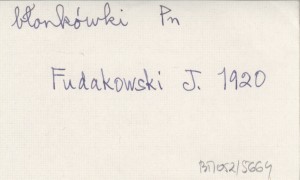 błonkówki Pn
Fudakowski J. 1920
BN052/5664